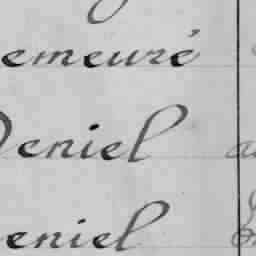 emeuré
Deniel
eniel